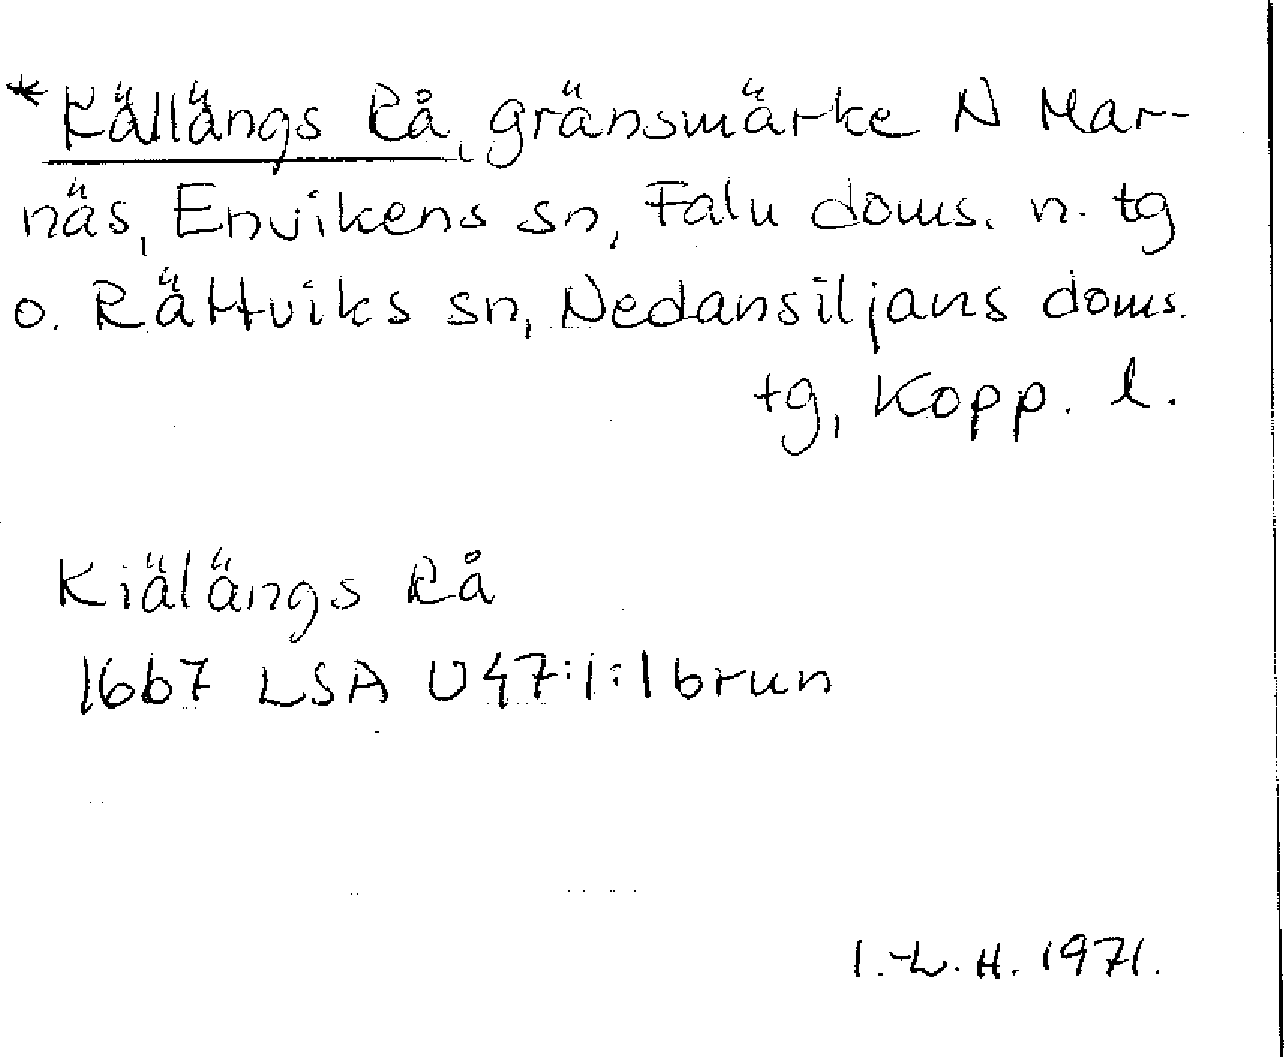 *Källängs Rå, gränsmärke N Mar-
näs, Envikens sn, Falu doms. n. tg
o. Rättviks sn, Nedansiljans doms.
tg, Kopp. l.
Kiälängs Rå
1667 LSA U47:1:1 brun
I.-L. H. 1971.